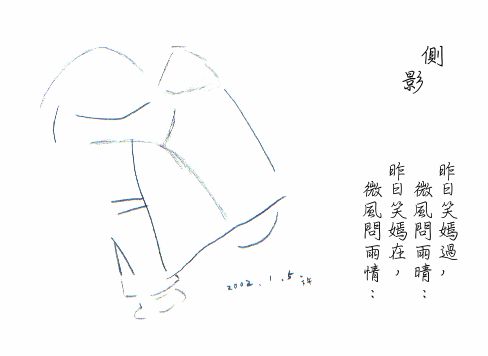 側影
昨日笑嫣過，
微風問雨晴：
昨日笑嫣在，
微風問雨情：
2002.1.5.許